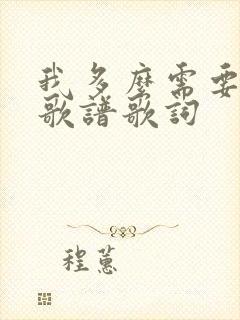 我多麼需要
歌譜歌詞
程蕙